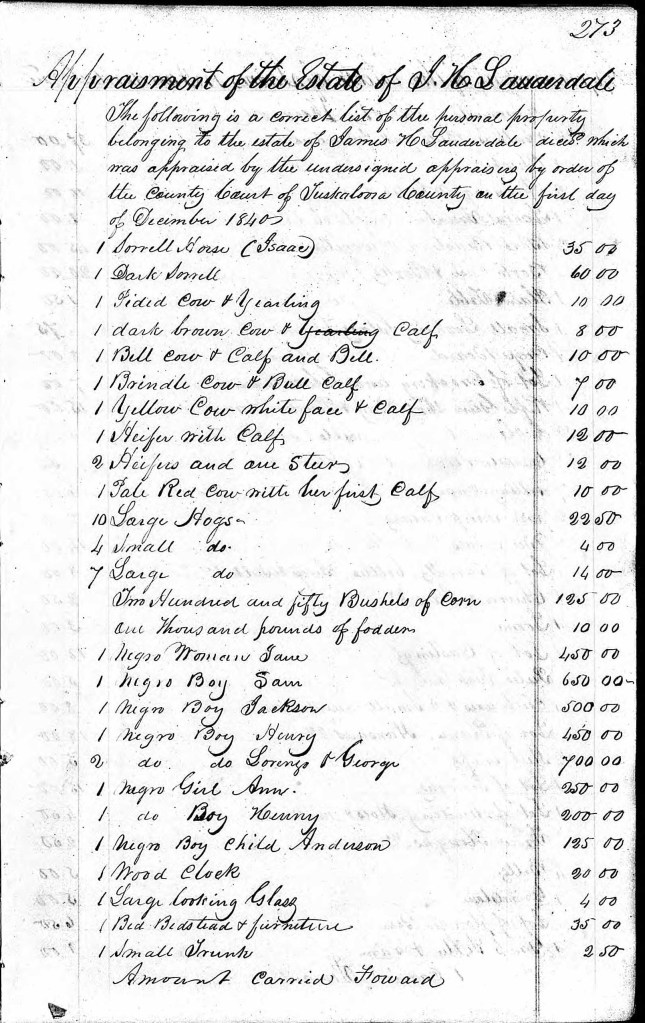 273
Appraisment of the Estate of J H Lauderdale
The following is a correct list of the personal property
belonging to the estate of James H Lauderdale decesd. which
was appraised by the undersigned appraisers by order of
the County Court of Tuskaloosa County on the first day
of December 1840
1 Sorrell Horse (Isaac) 35 00
1 Dark Sorrell 60 00
1 Pided Cow & Yearling 10 00
1 dark brown Cow & Yearling Calf 8 00
1 Bell Cow & Calf and Bell. 10 00
1 Brindle Cow & Bull Calf 7 00
1 Yellow Cow white face & Calf 10 00
1 Heifer with Calf 12 00
2 Heifers and one Steer 12 00
1 Pale Red Cow with her first Calf 10 00
10 Large Hogs 22 50
4 Small do. 4 00
7 Large do 14 00
Two Hundred and fifty Bushels of Corn 125 00
one Thousand pounds of fodder 10 00
1 Negro Woman Jane 450 00
1 Negro Boy Sam 650 00
1 Negro Boy Jackson 500 00
1 Negro Boy Henry 450 00
2 do. do Lorenzo & George 700 00
1 Negro Girl Ann. 250 00
1 do Boy Henny 200 00
1 Negro Boy Child Anderson 125 00
1 Wood Clock 20 00
1 Large looking Glass 4 00
1 Bed Bedstead & furniture 35 00
1 Small Trunk 2 50
Amount Carried Foward